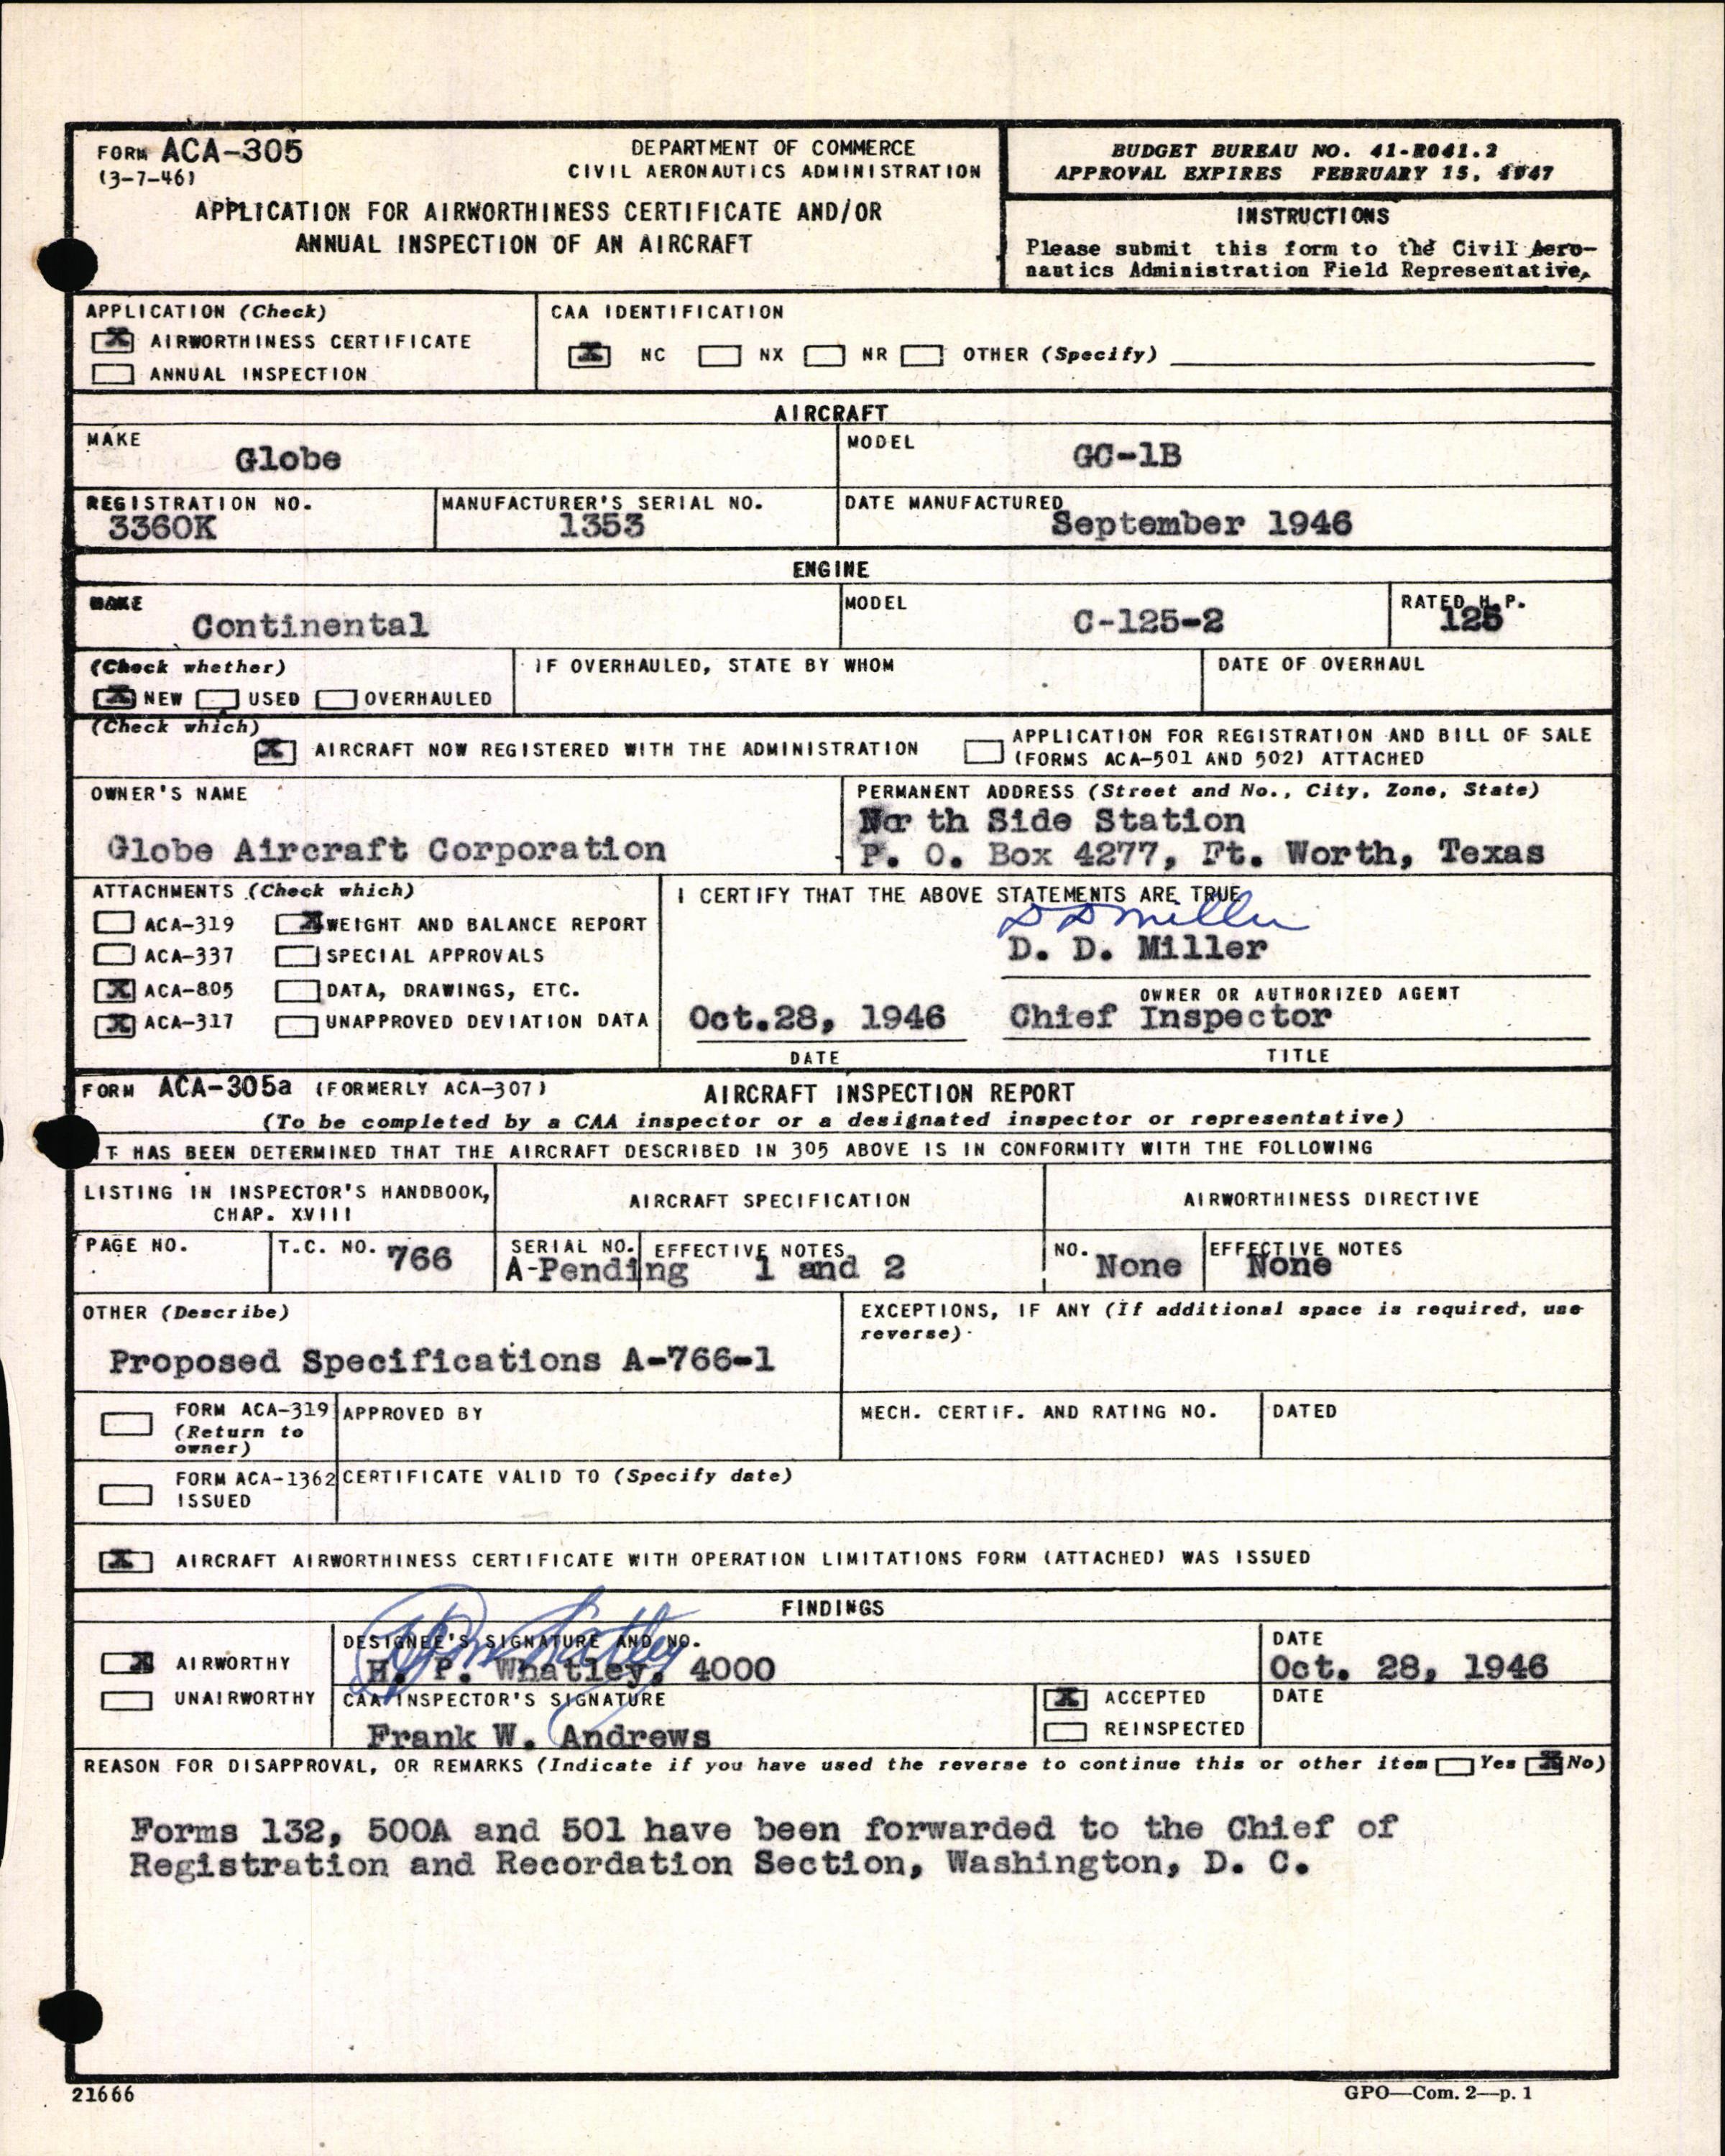 FORM ACA-305
(3-7-46)
DEPARTMENT OF COMMERCE
CIVIL AERONAUTICS ADMINISTRATION
APPLICATION FOR AIRWORTHINESS CERTIFICATE AND/OR
ANNUAL INSPECTION OF AN AIRCRAFT
BUDGET BUREAU NO. 41-R041.2
APPROVAL EXPIRES FEBRUARY 15, 1947
INSTRUCTIONS
Please submit this form to the Civil Aero-
nautics Administration Field Representative.
APPLICATION (Check)
X AIRWORTHINESS CERTIFICATE
ANNUAL INSPECTION
CAA IDENTIFICATION
X NC NX NR OTHER (Specify)
AIRCRAFT
MAKE
Globe
MODEL
GC-1B
REGISTRATION NO.
3360K
MANUFACTURER'S SERIAL NO.
1353
DATE MANUFACTURED
September 1946
ENGINE
MAKE
Continental
MODEL
C-125-2
RATED H.P.
125
(Check whether)
X NEW USED OVERHAULED
IF OVERHAULED, STATE BY WHOM
DATE OF OVERHAUL
(Check which)
X AIRCRAFT NOW REGISTERED WITH THE ADMINISTRATION
APPLICATION FOR REGISTRATION AND BILL OF SALE
(FORMS ACA-501 AND 502) ATTACHED
OWNER'S NAME
Globe Aircraft Corporation
PERMANENT ADDRESS (Street and No., City, Zone, State)
Nor th Side Station
P. O. Box 4277, Ft. Worth, Texas
ATTACHMENTS (Check which)
ACA-319 X WEIGHT AND BALANCE REPORT
ACA-337 SPECIAL APPROVALS
X ACA-805 DATA, DRAWINGS, ETC.
X ACA-317 UNAPPROVED DEVIATION DATA
I CERTIFY THAT THE ABOVE STATEMENTS ARE TRUE
D D Miller
D. D. Miller
OWNER OR AUTHORIZED AGENT
Oct.28, 1946 Chief Inspector
DATE TITLE
FORM ACA-305a (FORMERLY ACA-307) AIRCRAFT INSPECTION REPORT
(To be completed by a CAA inspector or a designated inspector or representative)
IT HAS BEEN DETERMINED THAT THE AIRCRAFT DESCRIBED IN 305 ABOVE IS IN CONFORMITY WITH THE FOLLOWING
LISTING IN INSPECTOR'S HANDBOOK,
CHAP. XVIII
AIRCRAFT SPECIFICATION
AIRWORTHINESS DIRECTIVE
PAGE NO.
T.C. NO. 766
SERIAL NO.
A-Pending
EFFECTIVE NOTES
1 and 2
NO. None
EFFECTIVE NOTES
None
OTHER (Describe)
Proposed Specifications A-766-1
EXCEPTIONS, IF ANY (If additional space is required, use
reverse)
FORM ACA-319
(Return to
owner)
APPROVED BY
MECH. CERTIF. AND RATING NO.
DATED
FORM ACA-1362
ISSUED
CERTIFICATE VALID TO (Specify date)
X AIRCRAFT AIRWORTHINESS CERTIFICATE WITH OPERATION LIMITATIONS FORM (ATTACHED) WAS ISSUED
FINDINGS
X AIRWORTHY
UNAIRWORTHY
DESIGNEE'S SIGNATURE AND NO.
H. P. Whatley, 4000
DATE
Oct. 28, 1946
CAA INSPECTOR'S SIGNATURE
Frank W. Andrews
X ACCEPTED
REINSPECTED
DATE
REASON FOR DISAPPROVAL, OR REMARKS (Indicate if you have used the reverse to continue this or other item Yes X No)
Forms 132, 500A and 501 have been forwarded to the Chief of
Registration and Recordation Section, Washington, D. C.
21666
GPO—Com. 2—p. 1